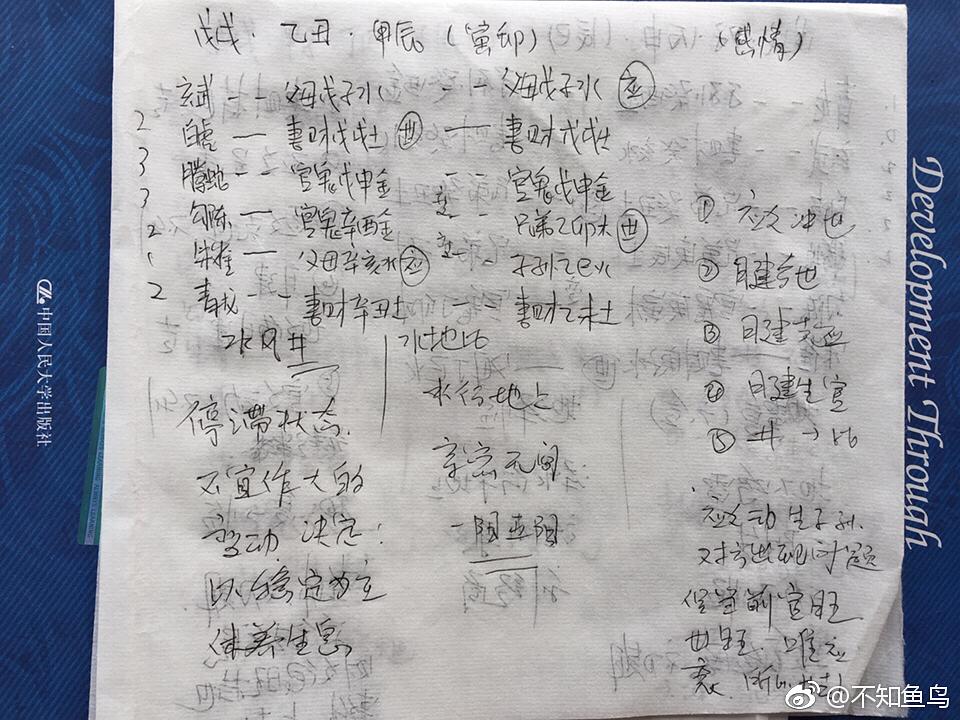 戊戌．乙丑．甲辰（寅卯）（感情）
玄武 -- 父母戊子水 -- 父母戊子水 应
2 白虎 — 妻财戊戌土 世 — 妻财戊戌土
3 腾蛇 -- 官鬼戊申金 -- 官鬼戊申金
3 勾陈 — 官鬼辛酉金 -- 兄弟乙卯木 世
2 朱雀 — 父母辛亥水 应 -- 子孙乙巳火
1
2 青龙 -- 妻财辛丑土 -- 妻财乙未土
水风井
水地比
停滞状态．
不宜作大的
变动 决定．
以稳定为主
休养生息
水行地上
亲密无间
① 应爻冲世
② 日建合世
③ 日建克应
④ 日建生官
⑤ 井→比
应爻动生子孙．
对方出现问题
世旺．唯应
衰．
中国人民大学出版社
Development Through
@不知鱼鸟